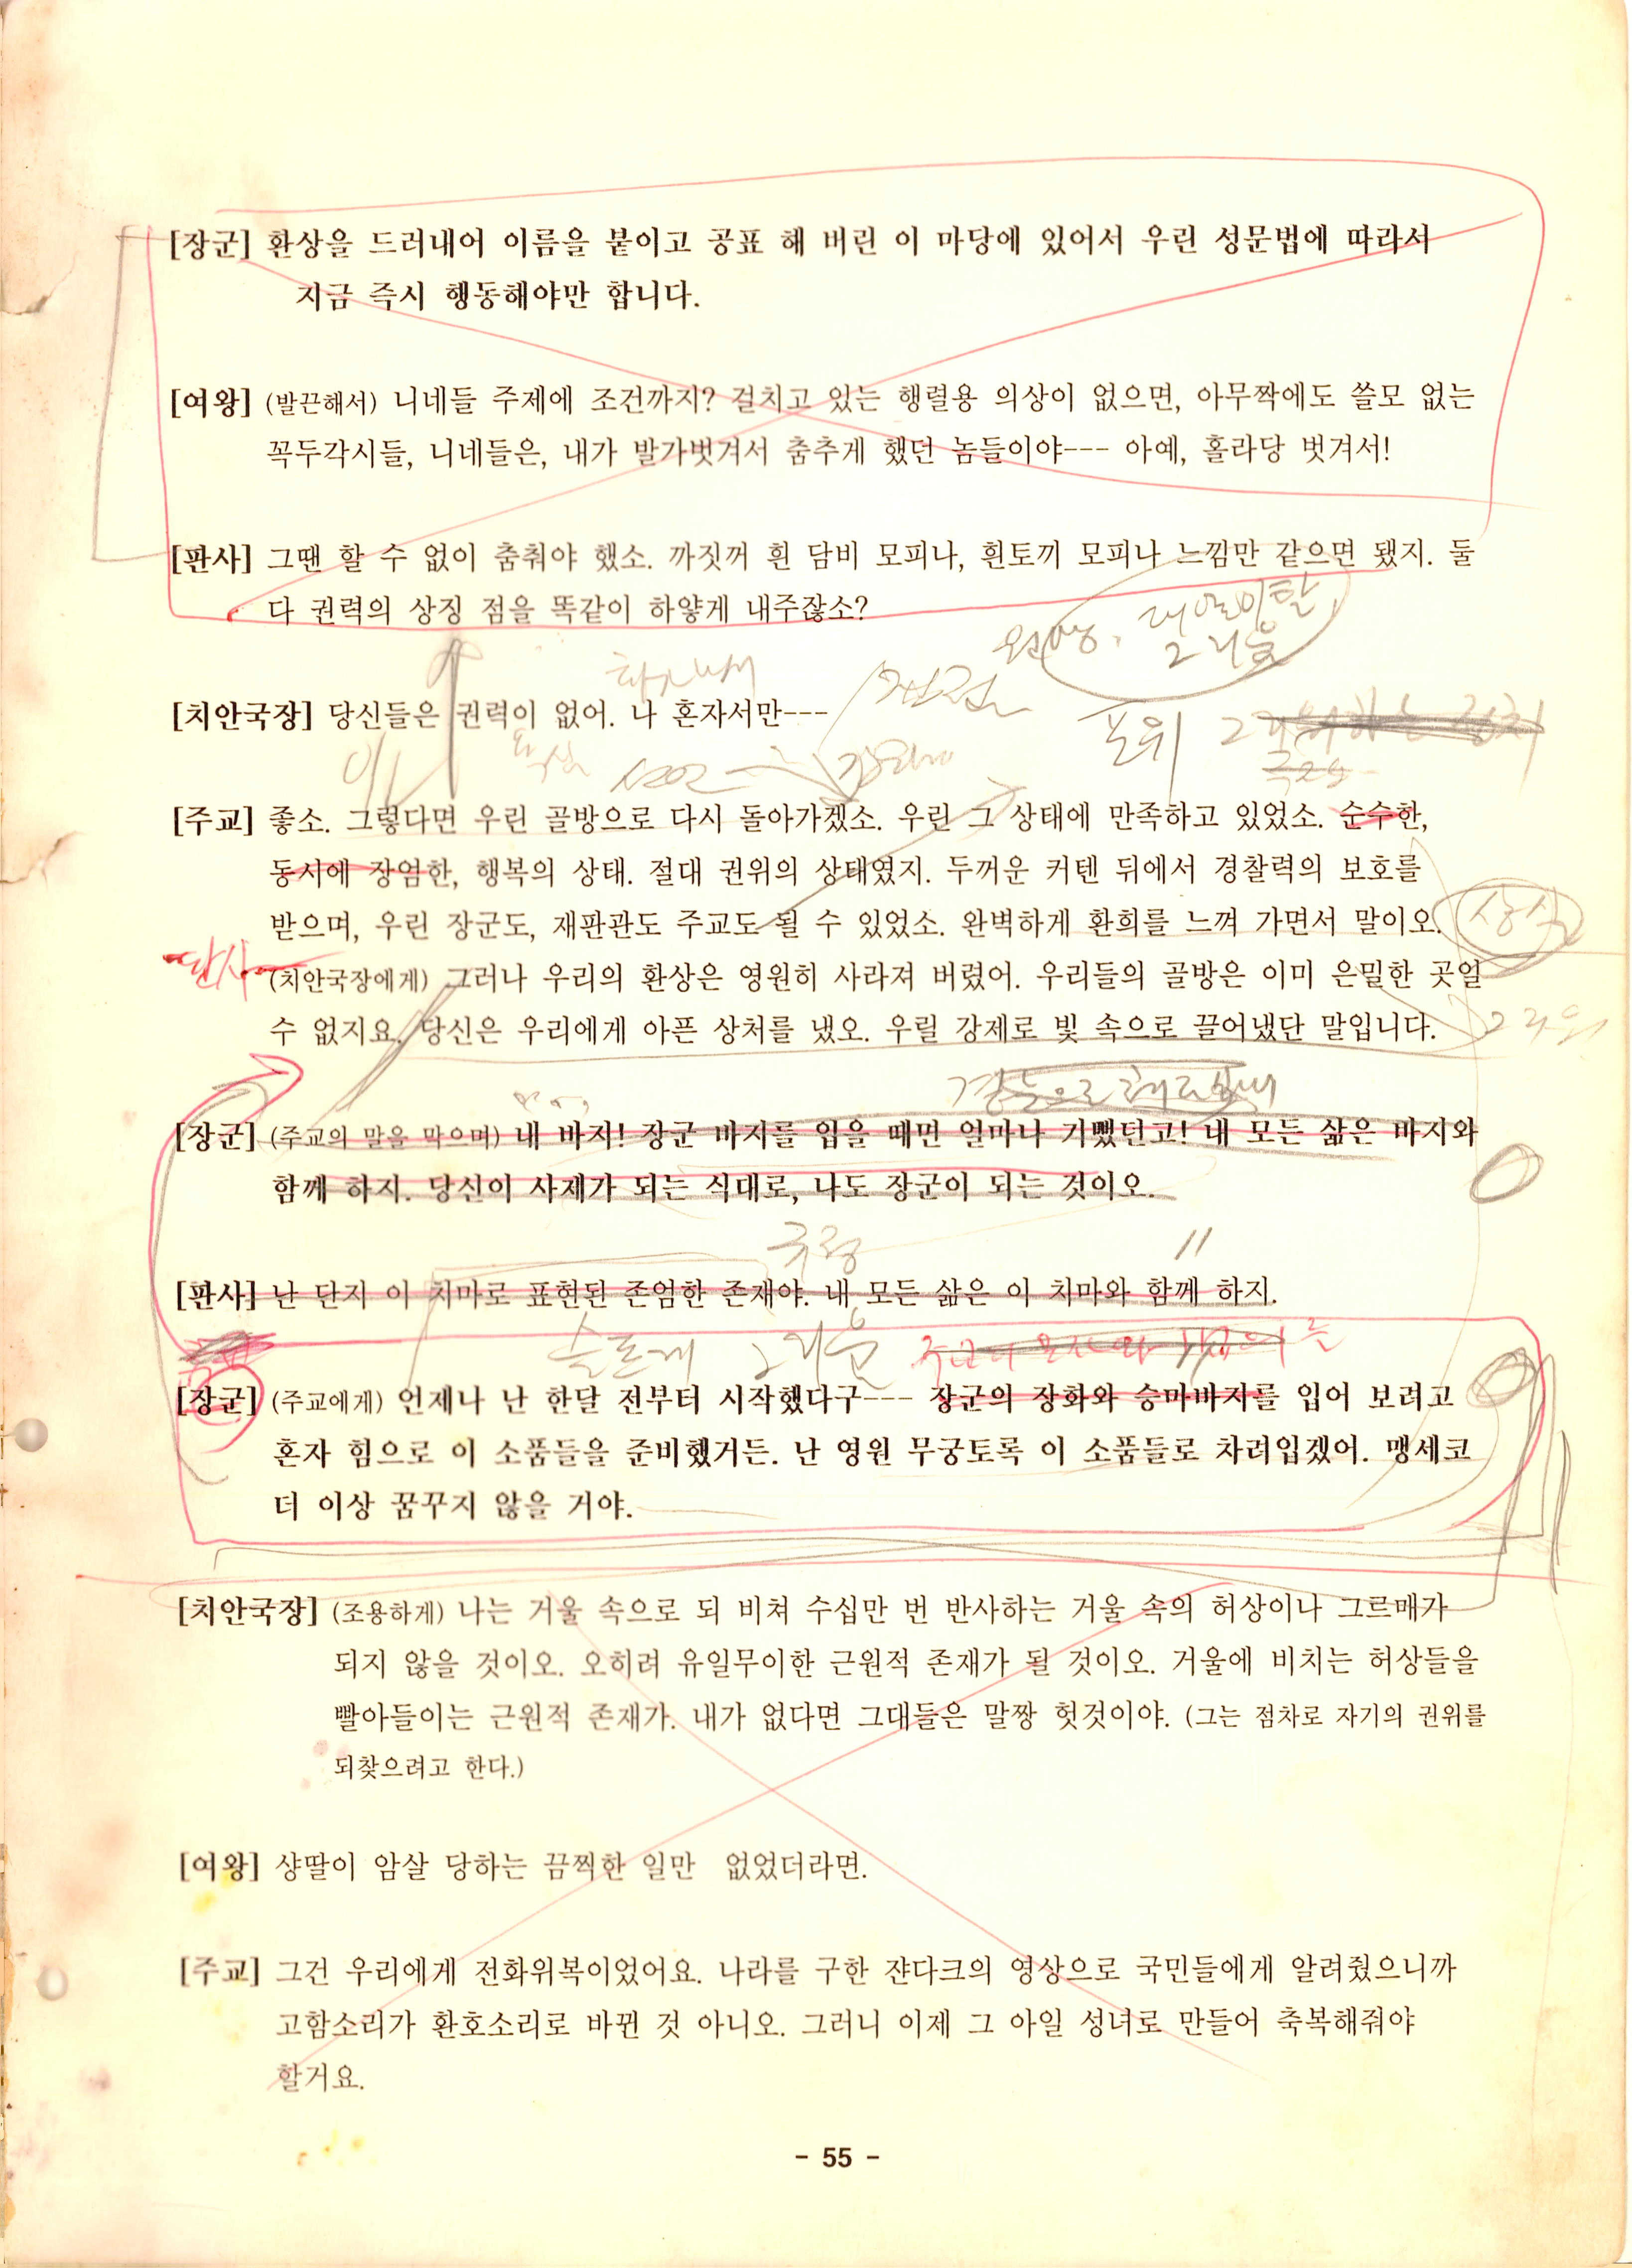 [장군] 환상을 드러내어 이름을 붙이고 공표 해 버린 이 마당에 있어서 우린 성문법에 따라서
지금 즉시 행동해야만 합니다.
[여왕] (발끈해서) 니네들 주제에 조건까지? 걸치고 있는 행렬용 의상이 없으면, 아무짝에도 쓸모 없는
꼭두각시들, 니네들은, 내가 발가벗겨서 춤추게 했던 놈들이야--- 아예, 홀라당 벗겨서!
[판사] 그땐 할 수 없이 춤춰야 했소. 까짓꺼 흰 담비 모피나, 흰토끼 모피나 느낌만 같으면 됐지. 둘
다 권력의 상징 점을 똑같이 하얗게 내주잖소?
[치안국장] 당신들은 권력이 없어. 나 혼자서만---
포위
[주교] 좋소. 그렇다면 우린 골방으로 다시 돌아가겠소. 우린 그 상태에 만족하고 있었소. 순수한,
동시에 장엄한, 행복의 상태. 절대 권위의 상태였지. 두꺼운 커텐 뒤에서 경찰력의 보호를
받으며, 우린 장군도, 재판관도 주교도 될 수 있었소. 완벽하게 환희를 느껴 가면서 말이오.
상식
판사
(치안국장에게) 그러나 우리의 환상은 영원히 사라져 버렸어. 우리들의 골방은 이미 은밀한 곳일
수 없지요. 당신은 우리에게 아픈 상처를 냈오. 우릴 강제로 빛 속으로 끌어냈단 말입니다.
[장군] (주교의 말을 막으며) 내 바지! 장군 바지를 입을 때면 얼마나 기뻤던고! 내 모든 삶은 바지와
함께 하지. 당신이 사제가 되는 식대로, 나도 장군이 되는 것이오.
[판사] 난 단지 이 치마로 표현된 존엄한 존재야. 내 모든 삶은 이 치마와 함께 하지.
[장군] (주교에게) 언제나 난 한달 전부터 시작했다구--- 장군의 장화와 승마바지를 입어 보려고
혼자 힘으로 이 소품들을 준비했거든. 난 영원 무궁토록 이 소품들로 차려입겠어. 맹세코
더 이상 꿈꾸지 않을 거야.
[치안국장] (조용하게) 나는 거울 속으로 되 비쳐 수십만 번 반사하는 거울 속의 허상이나 그르매가
되지 않을 것이오. 오히려 유일무이한 근원적 존재가 될 것이오. 거울에 비치는 허상들을
빨아들이는 근원적 존재가. 내가 없다면 그대들은 말짱 헛것이야. (그는 점차로 자기의 권위를
되찾으려고 한다.)
[여왕] 샹딸이 암살 당하는 끔찍한 일만 없었더라면.
[주교] 그건 우리에게 전화위복이었어요. 나라를 구한 쟌다크의 영상으로 국민들에게 알려줬으니까
고함소리가 환호소리로 바뀐 것 아니오. 그러니 이제 그 아일 성녀로 만들어 축복해줘야
할거요.
- 55 -